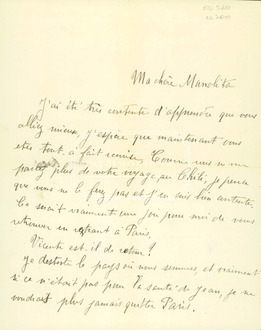 Ma chère Manolita
J'ai été très contente d'apprendre que vous
alliez mieux, j'espère que maintenant vous
etes tout à fait remise. Comme vous ne me
parlez plus de votre voyage au Chili, je pense
que vous ne le ferez pas et j'en suis bien contente
Ce serait vraiment une joie pour moi de vous
retrouver en rentrant à Paris.
Vicente est-il de retour?
Je deteste le pays où nous sommes, et vraiment
si ce n'était pas pour la santé de Jean, je ne
voudrais plus jamais quitter Paris.